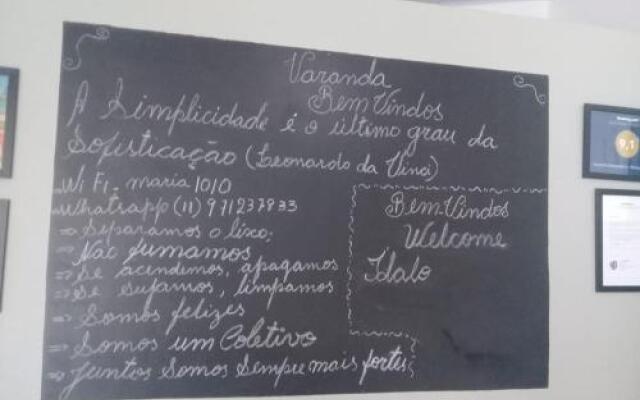 Varanda
Bem Vindos
A Simplicidade é o último grau da
Sofisticação (Leonardo da Vinci)
WiFi - maria1010
Whatsapp (11) 971237833
⇒ Separamos o lixo:
⇒ Não fumamos
⇒ Se acendemos, apagamos
⇒ Se sujamos, limpamos
⇒ Somos felizes
⇒ Somos um Coletivo
⇒ Juntos Somos Sempre mais fortes
Bem Vindos
Welcome
Idalo
9,1